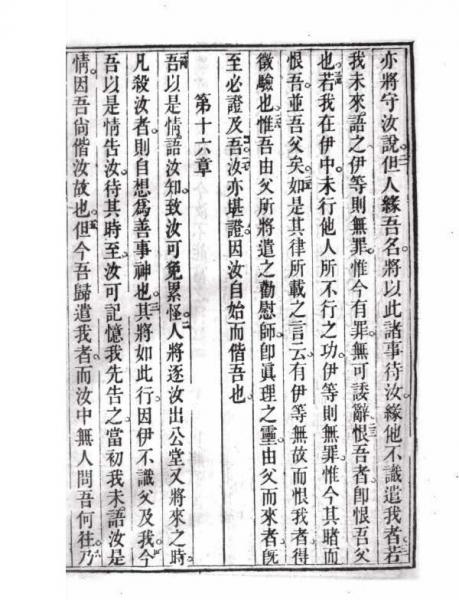 亦將守汝說但人緣吾名將以此諸事待汝緣他不識遣我者若
我未來語之伊等則無罪惟今有罪無可諉辭恨吾者卽恨吾父
也若我在伊中未行他人所不行之功伊等則無罪惟今其睹而
恨吾並吾父矣如是其律所載之言云有伊等無故而恨我者得
徵驗也惟吾由父所將遣之勸慰師卽眞理之靈由父而來者旣
至必證及吾汝亦堪證因汝自始而偕吾也
第十六章
吾以是情語汝知致汝可免累怪人將逐汝出公堂又將來之時
凡殺汝者則自想爲善事神也其將如此行因伊不識父及我今
吾以是情告汝待其時至汝可記憶我先告之當初我未語汝是
情因吾尙偕汝故也但今吾歸遣我者而汝中無人問吾何往乃